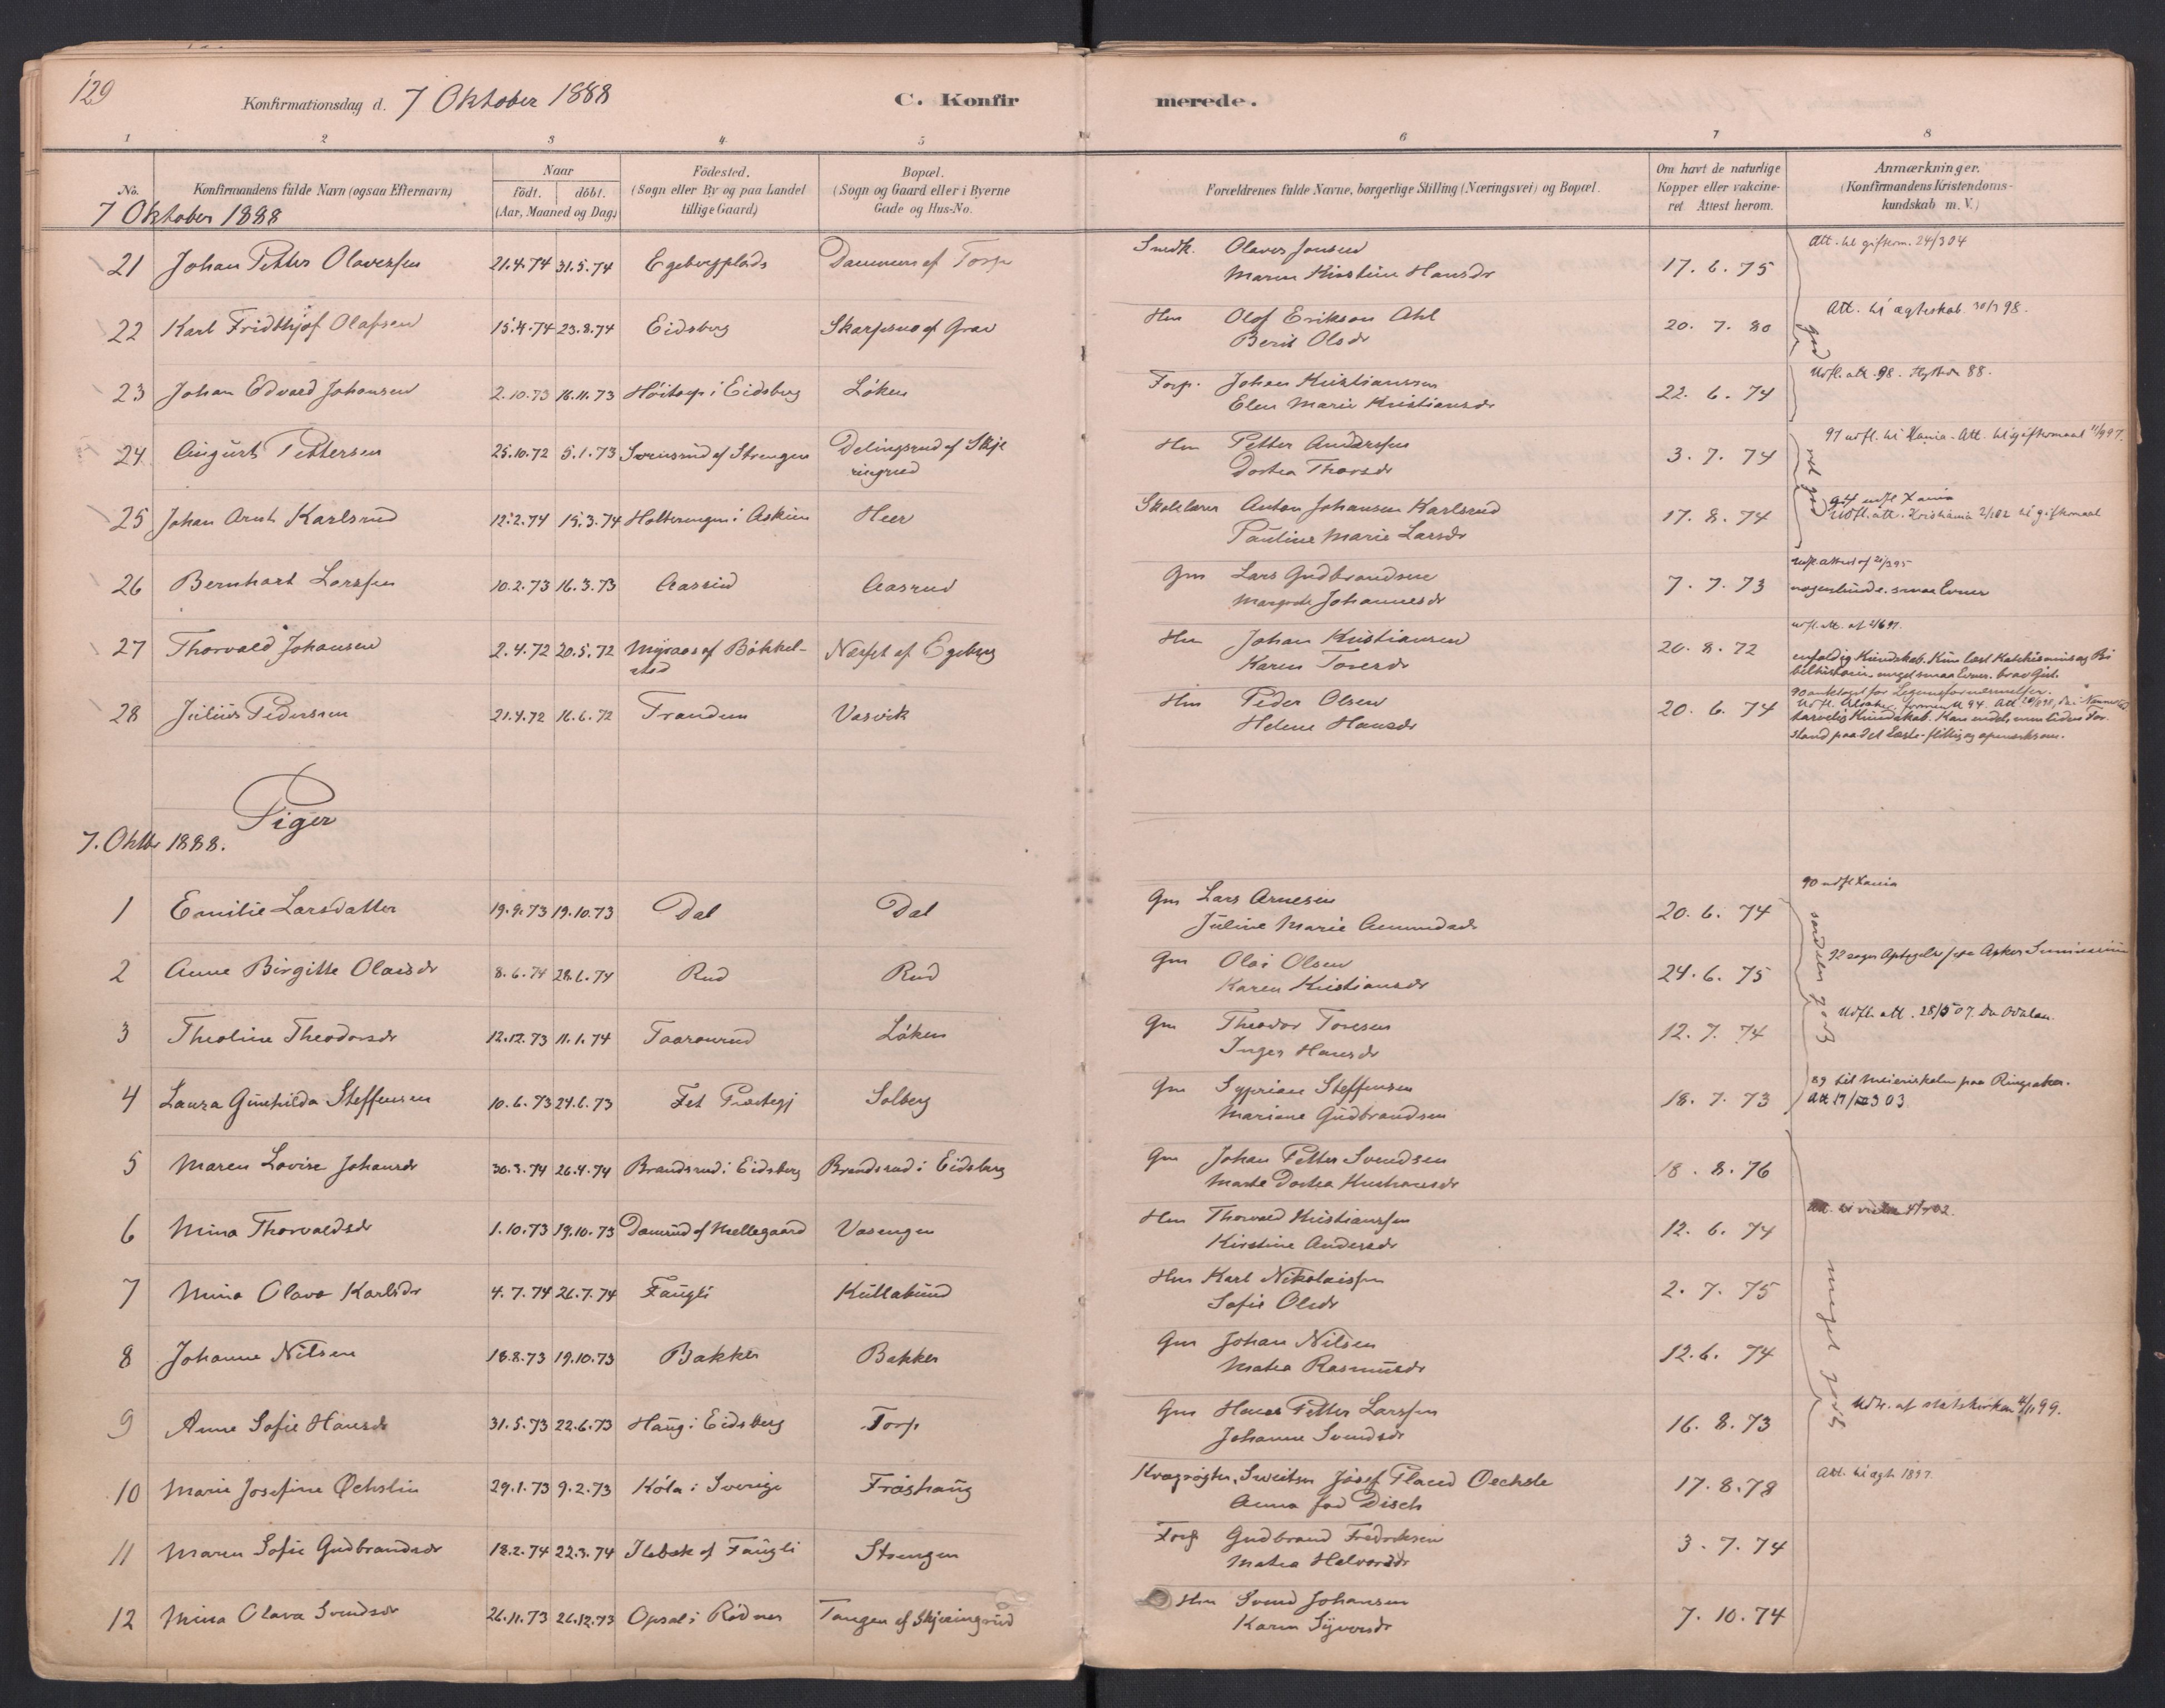 129
Konfirmationsdag d. 7 Oktober 1888
C. Konfir merede.
1 2 3 4 5 6 7 8
No. Konfirmandens fulde Navn (ogsaa Efternavn)
Naar
födt. döbt.
(Aar, Maaned og Dag)
Födested.
(Sogn eller By og paa Landet
tillige Gaard)
Bopæl.
(Sogn og Gaard eller i Byerne
Gade og Hus-No.
Forældrenes fulde Navne, borgerlige Stilling (Næringsvei) og Bopæl.
Om havt de naturlige
Kopper eller vakcine-
ret Attest herom.
Anmærkninger.
(Konfirmandens Kristendoms-
kundskab m. V.)
7 Oktober 1888
21 Johan Petter Olaversen 21.4.74 31.5.74 Egebergplads Dammen af Torp Smedk. Olaves Jonsen 17. 6. 75 Att. til giftem. 24/3 04
Maren Kirstine Hansdr
22 Karl Fridthjof Olafsen 15.4.74 23.8.74 Eidsberg Skarpsno af Grav Hm Olof Erikson Ahl 20. 7. 80 god Att. til ægteskab 30/1 98.
Berit Olsdr
23 Johan Edvard Johansen 2.10.73 16.11.73 Höitorp i Eidsberg Löken Forp. Johan Kristiansen 22. 6. 74 Udfl. att. 98.
Elen Marie Kristiansdr
24 August Pettersen 25.10.72 5.1.73 Sorusrud af Strengen Delingsrud af Skje Hm Petter Andersen 3. 7. 74 meget god 91 udfl. til Kania - Att. til giftermaal 11/9 97.
ringrud Dortea Thorsdr
25 Johan Arnt Karlsrud 12.2.74 15.3.74 Holterengen i Askim Heer Skolelærer Anton Johansen Karlsrud 17. 8. 74 94 udfl Kania
Pauline Marie Larsdr Udfl. att. Kristiania 2/1 02 til giftermaal
26 Bernhart Larsen 10.2.73 16.3.73 Aasrud Aasrud Gm Lars Gudbrandsen 7. 7. 73 Udfl. attest af 21/3 95
Margrete Johannesdr nogenlunde. smaa Evner
27 Thorvald Johansen 2.4.72 20.5.72 Myraas af Bökkel- Næset af Egeberg Hm Johan Kristiansen 20. 8. 72 udfl. att. af 4/6 91.
sted Karen Toresdr enfoldig Kundskab. Kun læst Katekismus og Bi
belhistorie. meget smaa Evner. brav Gut.
28 Julius Pedersen 21.4.72 16.6.72 Trandum Vasvik Hm Peder Olsen 20. 6. 74 90 anklaget for Legemsfornærmelser.
Helene Hansdr tarvelig Kundskab. Kan endel, men liden For-
stand paa det Læste - flittig og opmerksom.
Piger
7. Oktbr 1888.
1 Emilie Larsdatter 19.9.73 19.10.73 Dal Dal Gm Lars Arnesen 20. 6. 74 90 udfl Kania
Juline Marie Amundsdr
2 Anne Birgitte Olaisdr 8.6.74 28.6.74 Rud Rud Gm Olai Olsen 24. 6. 75 særdeles godt 92 søger Optagelse paa Asker Seminarium
Karen Kristiansdr
3 Theoline Theodorsdr 12.12.73 11.1.74 Taaronrud Löken Gm Theodor Toresen 12. 7. 74 Udfl. att. 28/5 07. Da Odalen.
Inger Hansdr
4 Laura Gunhilda Steffensen 10.6.73 24.6.73 Fet Prestegj Solberg Gm Syprian Steffensen 18. 7. 73 89 til Meieriskolen paa Ringsaker.
Mariane Gudbrandsen Att 17/3 03
5 Maren Lovise Johansdr 30.3.74 26.4.74 Brandsrud i Eidsberg Brandsrud i Eidsberg Gm Johan Petter Svendsen 18. 8. 76
Marte Dortea Kristiansdr
6 Mina Thorvaldsdr 1.10.73 19.10.73 Damrud af Mellegaard Vasengen Hm Thorvald Kristiansen 12. 6. 74
Kirstine Andersdr
7 Mina Olava Karlsdr 4.7.74 26.7.74 Faugli Kullabund Hm Karl Nikolaisen 2. 7. 75 meget godt
Sofie Olsdr
8 Johanne Nilsen 18.8.73 19.10.73 Bakker Bakker Gm Johan Nilsen 12. 6. 74
Matea Rasmusdr
9 Anne Sofie Hansdr 31.5.73 22.6.73 Haug i Eidsberg Torp Gm Hans Petter Larsen 16. 8. 73 Udtr. af statskirken 99.
Johanne Svendsdr
10 Marie Josefine Øchslin 29.1.73 9.2.73 Köla i Sverige Fröshaug Kvægrögter, Sweitser Josef Placed Oechsle 17. 8. 78 Att. til ægt. 1897.
Anna fød Disch
11 Maren Sofie Gudbrandsdr 18.2.74 22.3.74 Ilebæk af Faugli Strengen Forp Gudbrand Fredriksen 3. 7. 74
Matea Halvorsdr
12 Mina Olava Svendsdr 26.11.73 26.12.73 Opsal i Rödnes Tangen af Skjeringrud Hm Svend Johansen 7. 10. 74
Karen Syversdr